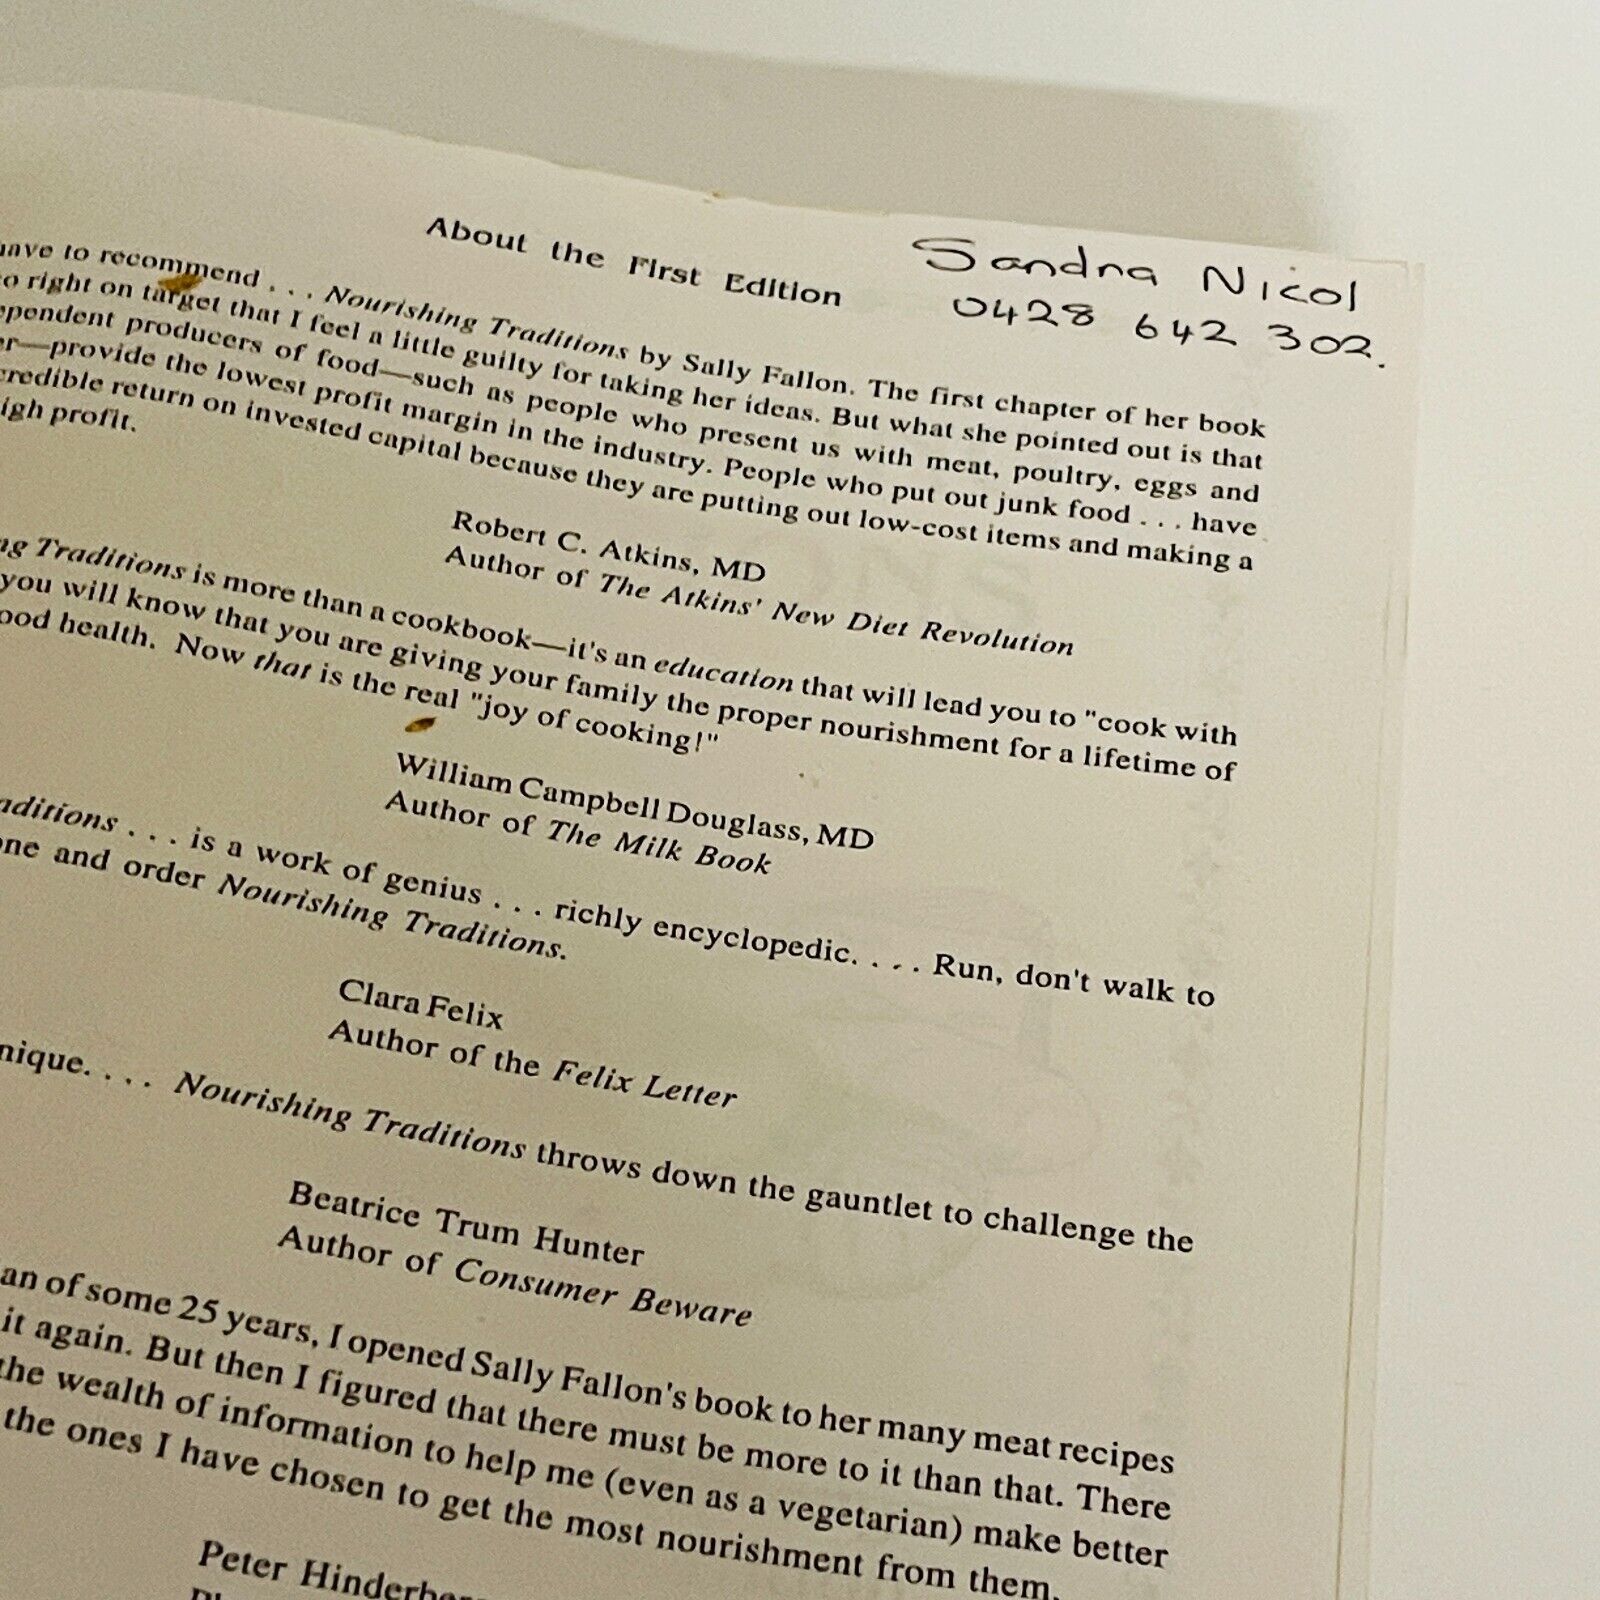 About the First Edition
Sandra Nicol
0428 642 302.
have to recommend . . . Nourishing Traditions by Sally Fallon. The first chapter of her book
so right on target that I feel a little guilty for taking her ideas. But what she pointed out is that
ependent producers of food—such as people who present us with meat, poultry, eggs and
er—provide the lowest profit margin in the industry. People who put out junk food . . . have
credible return on invested capital because they are putting out low-cost items and making a
igh profit.
Robert C. Atkins, MD
Author of The Atkins' New Diet Revolution
ng Traditions is more than a cookbook—it's an education that will lead you to "cook with
you will know that you are giving your family the proper nourishment for a lifetime of
ood health. Now that is the real "joy of cooking!"
William Campbell Douglass, MD
Author of The Milk Book
aditions . . . is a work of genius . . . richly encyclopedic. . . . Run, don't walk to
one and order Nourishing Traditions.
Clara Felix
Author of the Felix Letter
nique. . . . Nourishing Traditions throws down the gauntlet to challenge the
Beatrice Trum Hunter
Author of Consumer Beware
an of some 25 years, I opened Sally Fallon's book to her many meat recipes
it again. But then I figured that there must be more to it than that. There
the wealth of information to help me (even as a vegetarian) make better
the ones I have chosen to get the most nourishment from them.
Peter